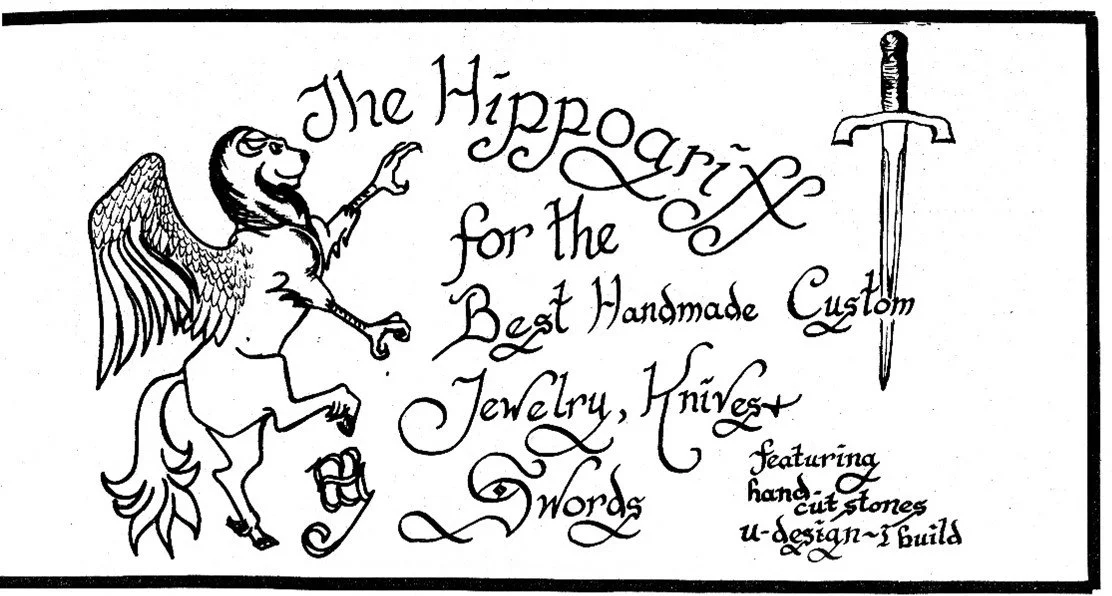 The Hippogriff
for the
Best Handmade Custom
Jewelry, Knives +
Swords
featuring
hand-
cut stones
u-design~I build